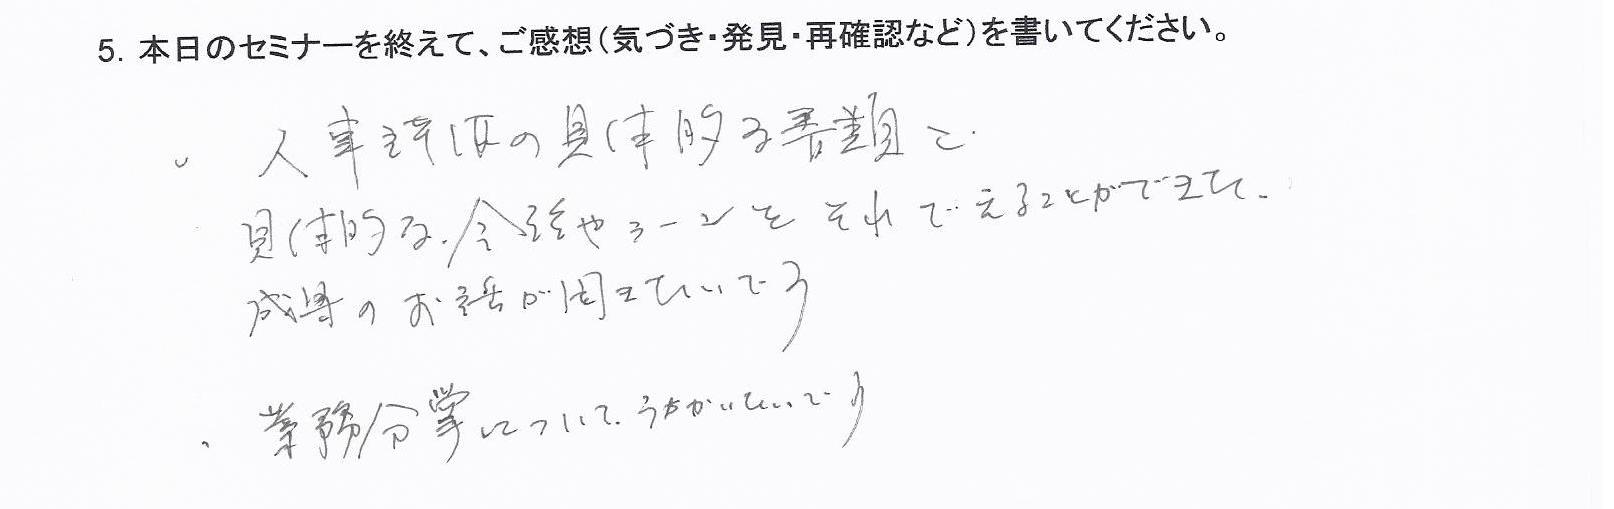 5. 本日のセミナーを終えて、ご感想(気づき・発見・再確認など)を書いてください。
・ 人事評価の具体的な書類で
具体的な、会話やシーンを それで えることができました。
成長の お話が聞きたいです
・ 業務分掌について、うかがいたいです